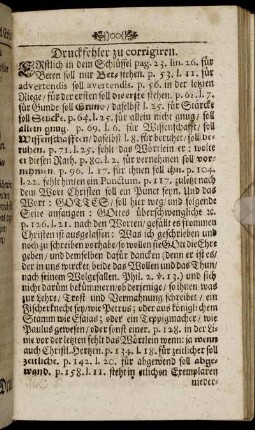 Druckfehler zu corrigiren.
ERstlich in dem Schlüssel pag. 23. lin. 26. für
Beten soll nur Bete stehen. p. 53. l. 11. für
advertendis soll avertendis. p. 56. in der letzten
Riege / für der ersten soll die erste stehen. p. 62. l. 7.
für Gunde soll Grund / daselbst l. 25. für Stärcke
soll Stücke. p. 64. l. 25. für allein nicht gnug / soll
allein gnug. p. 69. l. 6. für Wissenschafft / soll
Wissenschafften / daselbst l. 8. für beruhet / soll be-
ruhen. p. 71. l. 25. fehlt das Wörtlein er: wolte
er diesen Rath. p. 80. l. 2. für vernehmen soll vor-
nehmen. p. 96. l. 17. für ihnen soll ihn. p. 104.
l. 22. fehlt hinten ein Punctum. p. 117. zuletzt nach
dem Wort Christen soll ein Punct seyn. Und das
Wort: GOTTES / soll hier weg / und folgende
Seite anfangen: GOttes überschwengliche ꝛc.
p. 126. l. 21. nach den Worten / gefällt es frommen
Christen ist ausgelassen: Was ich geschrieben und
noch zu schreiben vorhabe / so wollen sie GOtt die Ehre
geben / und demselben dafür dancken (denn er ist es /
der in uns wircket / beide das Wollen und das Thun /
nach seinem Wolgefallen. Phil. 2. v. 13.) und sich
nicht darum bekümmern / ob derjenige / so ihnen was
zur Lehre / Trost und Vermahnung schreibet / ein
Fischerknecht sey / wie Petrus; oder aus königlichem
Stamm wie Esaias; oder ein Teppigmacher / wie
Paulus gewesen / oder sonst einer. p. 128. in der Li-
nie vor der letzten fehlt das Wörtlein wenn: ja wenn
auch Christl. Hertzen. p. 134. l. 18. für zeitlicher soll
zeitliche. p. 142. l. 20. für abgewend soll abge-
wand. p. 158. l. 11. steht in etlichen Exemplaren
nieder-